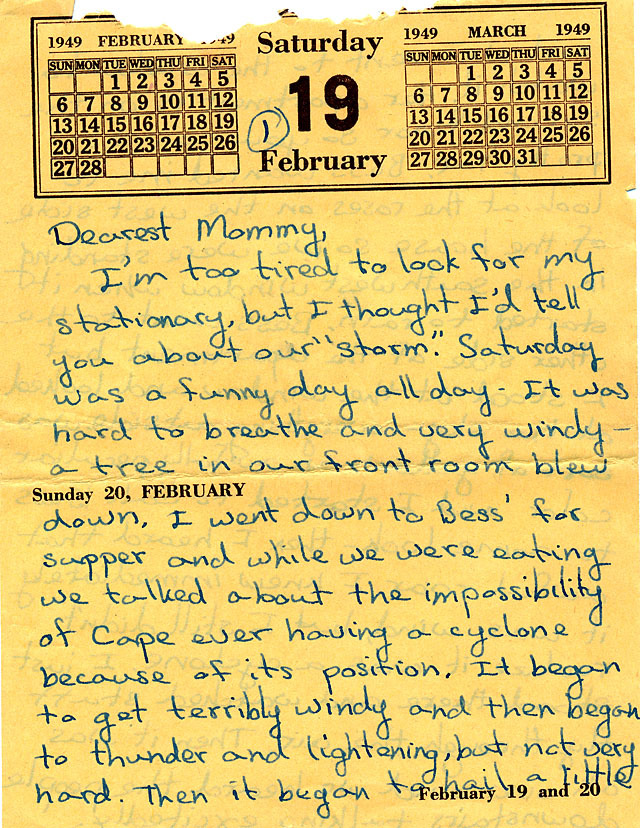 1949 FEBRUARY 1949
SUN MON TUE WED THU FRI SAT
1 2 3 4 5
6 7 8 9 10 11 12
13 14 15 16 17 18 19
20 21 22 23 24 25 26
27 28
Saturday
19
1
February
1949 MARCH 1949
SUN MON TUE WED THU FRI SAT
1 2 3 4 5
6 7 8 9 10 11 12
13 14 15 16 17 18 19
20 21 22 23 24 25 26
27 28 29 30 31
Dearest Mommy,
I'm too tired to look for my
stationary, but I thought I'd tell
you about our "storm". Saturday
was a funny day all day - It was
hard to breathe and very windy -
a tree in our front room blew
Sunday 20, FEBRUARY
down. I went down to Bess' for
supper and while we were eating
we talked about the impossibility
of Cape ever having a cyclone
because of its position. It began
to get terribly windy and then began
to thunder and lightening, but not very
hard. Then it began to hail a little
February 19 and 20